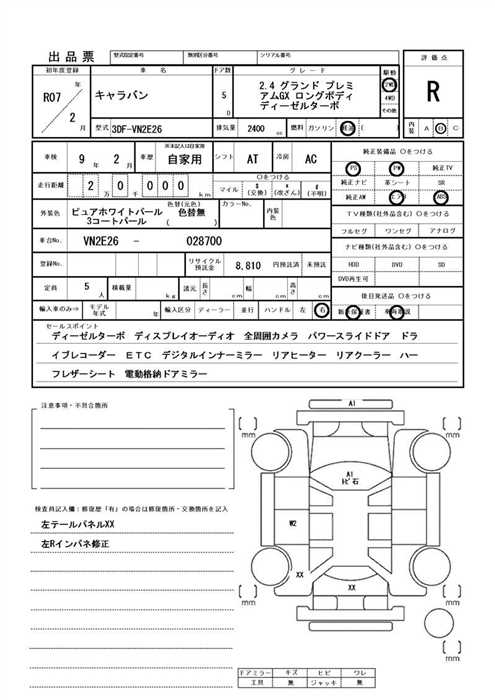 出品票 型式指定番号 類別区分番号 シリアル番号
評価点
初年度登録 車名 ドア数 グレード 駆動
R07 年 2 月
キャラバン
5 D
2.4 グランド プレミ
アムGX ロングボディ
ディーゼルターボ
2WD
4WD
その他
R
型式 3DF-VN2E26 排気量 2400 cc 燃料 ガソリン 軽油 E
内装 A B C
車検 9 年 2 月 車歴 ※未記入は自家用 自家用 シフト AT 冷房 AC
純正装備品 〇をつける
PS PW 純正TV
走行距離 2 万 0 千 0 0 0 km
〇をつける
マイル $ (交換) * (改ざん) # (不明)
純正ナビ 革シート SR
純正AW エアB ABS
外装色 色替(元色)
ピュアホワイトパール 色替無
3コートパール ( )
カラーNo. 内装色
TV種類(社外品含む) 〇をつける
フルセグ ワンセグ アナログ
車台No. VN2E26 - 028700
ナビ種類(社外品含む) 〇をつける
登録No. リサイクル預託金 8,810 円預託済 未預託
HDD DVD SD
DVD再生可
定員 5 人 積載量 kg 諸元 長さ cm 幅 cm 高さ cm
後日発送品 〇をつける
輸入車のみ⇒ モデル年式 年 輸入区分 ディーラー 並行 ハンドル 左 右
セールスポイント
ディーゼルターボ ディスプレイオーディオ 全周囲カメラ パワースライドドア ドラ
イブレコーダー ETC デジタルインナーミラー リアヒーター リアクーラー ハー
フレザーシート 電動格納ドアミラー
注意事項・不具合箇所
検査員記入欄:修復歴「有」の場合は修復箇所・交換箇所を記入
左テールパネルXX
左Rインパネ修正
A1
mm
mm
A1
トビ石
W2
XX
XX
mm
mm
ドアミラー キズ ヒビ ワレ
工具 無 ジャッキ 無